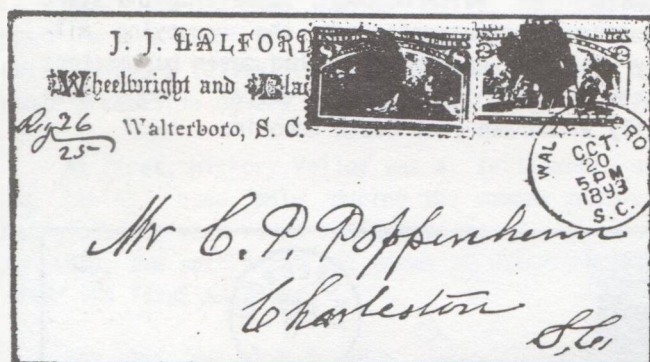 J. J. HALFORD
Wheelwright and Bla
Walterboro, S. C.
Reg 26
25
WAL RO
OCT.
20
5 PM
1893
S. C.
Mr C. P. Poppenheim
Charleston
S.C.